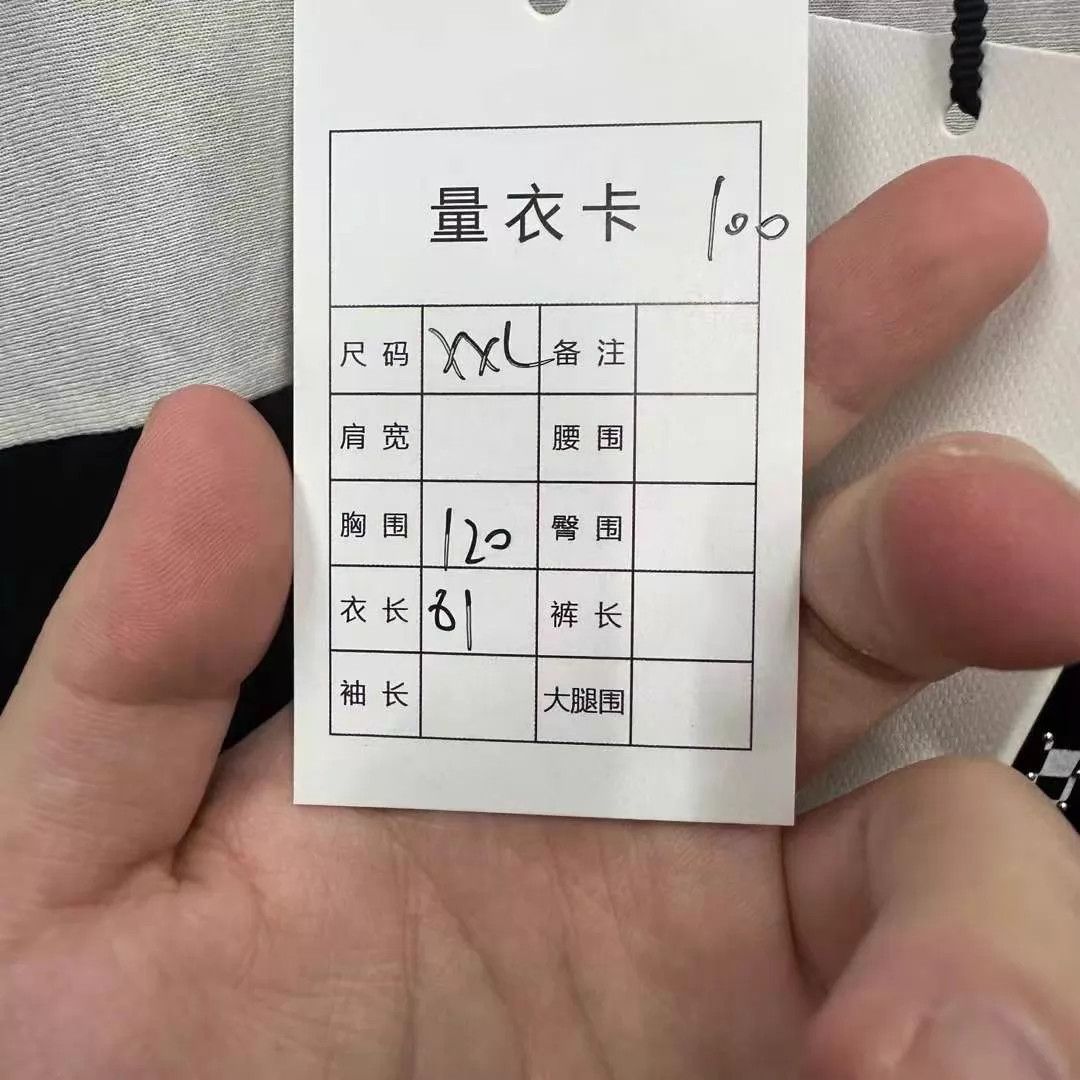 量衣卡 100
尺码 XXL 备注
肩宽 腰围
胸围 120 臀围
衣长 61 裤长
袖长 大腿围